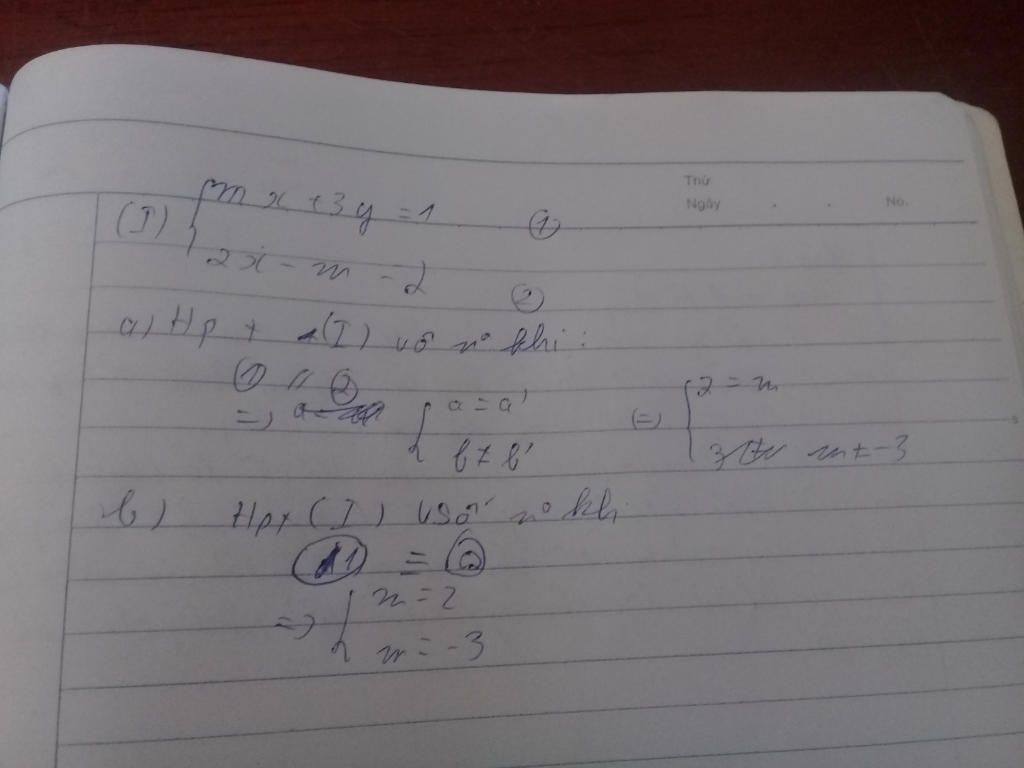 Thứ
Ngày . . No.
(I) { mx + 3y = 1 ①
2x - m - 2 ②
a) Hp + (I) vô n° khi :
① // ②
=> { a = a' (=) { 2 = m
b ≠ b' m ≠ -3
b) Hpt (I) vsố n° khi
① ≡ ②
=> { m = 2
m = -3